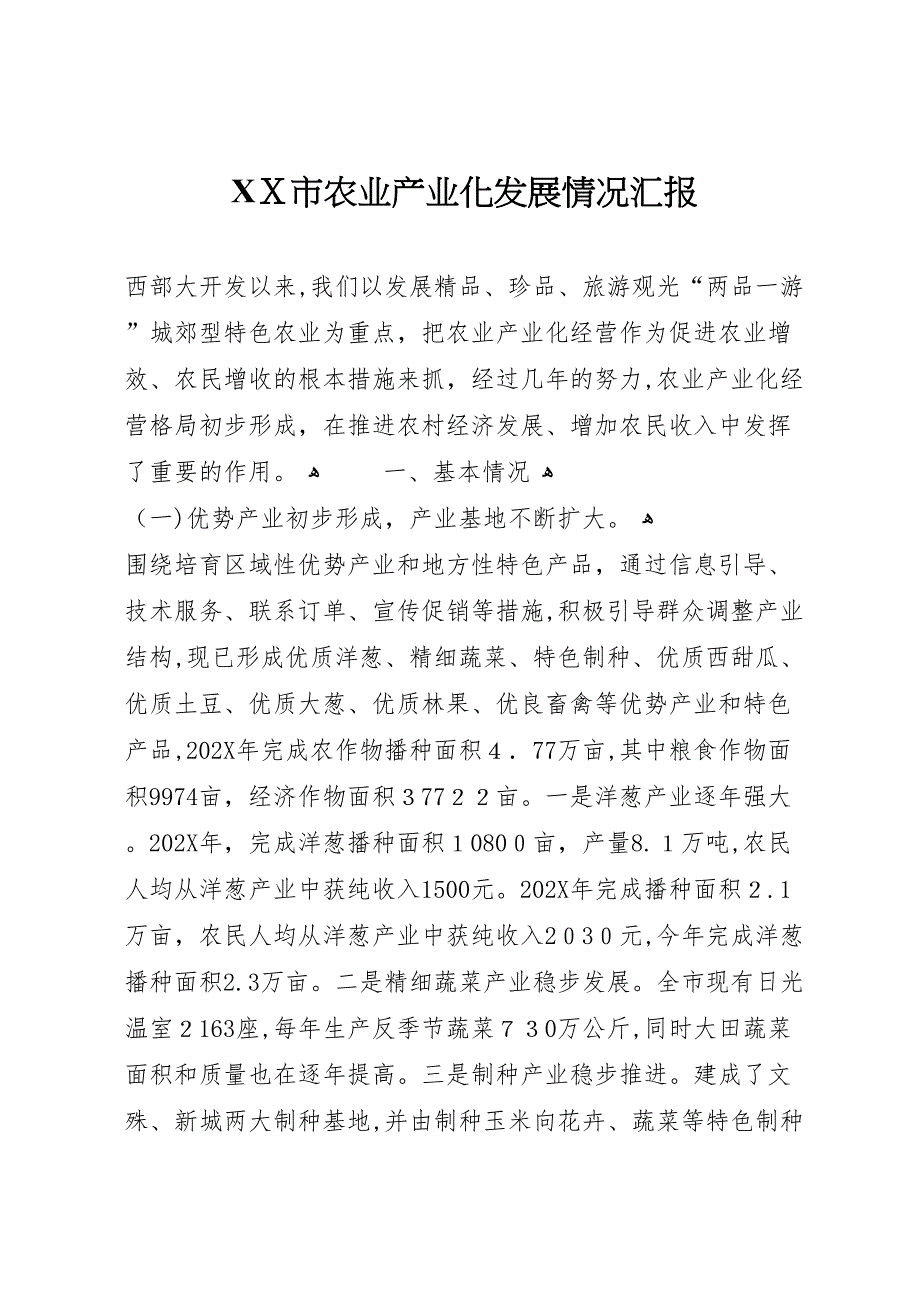 XX市农业产业化发展情况汇报
西部大开发以来,我们以发展精品、珍品、旅游观光“两品一游
”城郊型特色农业为重点，把农业产业化经营作为促进农业增
效、农民增收的根本措施来抓，经过几年的努力,农业产业化经
营格局初步形成，在推进农村经济发展、增加农民收入中发挥
了重要的作用。 ﻫ 一、基本情况 ﻫ
（一)优势产业初步形成，产业基地不断扩大。 ﻫ
围绕培育区域性优势产业和地方性特色产品，通过信息引导、
技术服务、联系订单、宣传促销等措施,积极引导群众调整产业
结构,现已形成优质洋葱、精细蔬菜、特色制种、优质西甜瓜、
优质土豆、优质大葱、优质林果、优良畜禽等优势产业和特色
产品,202X年完成农作物播种面积４．77万亩,其中粮食作物面
积9974亩，经济作物面积３77２２亩。一是洋葱产业逐年强大
。202X年，完成洋葱播种面积１080０亩，产量8.１万吨,农民
人均从洋葱产业中获纯收入1500元。202X年完成播种面积２.1
万亩，农民人均从洋葱产业中获纯收入2０3０元,今年完成洋葱
播种面积2.3万亩。二是精细蔬菜产业稳步发展。全市现有日光
温室２163座,每年生产反季节蔬菜７３0万公斤,同时大田蔬菜
面积和质量也在逐年提高。三是制种产业稳步推进。建成了文
殊、新城两大制种基地,并由制种玉米向花卉、蔬菜等特色制种